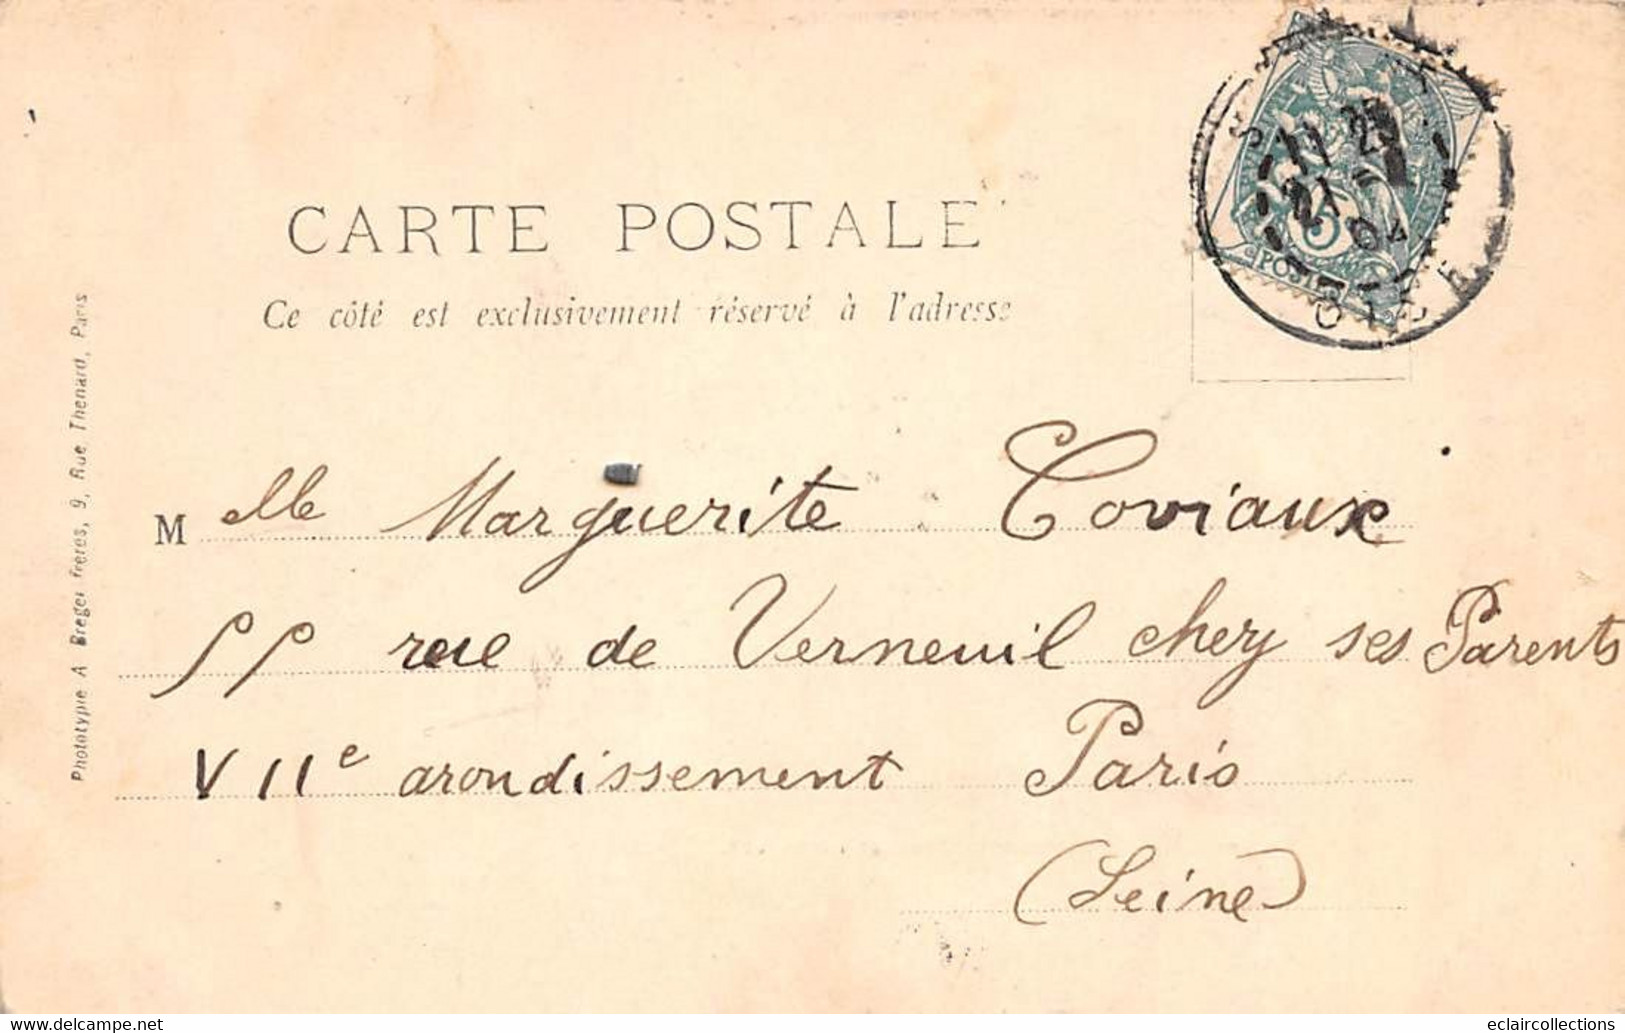 CARTE POSTALE
Ce côté est exclusivement réservé à l'adresse
Phototypie A Breger frères, 9, Rue Thenard, Paris
Melle Marguerite Coviaux
55 rue de Verneuil chez ses Parents
VIIe arondissement Paris
(Seine)
5
POSTES
11 25
21
04
OISE
eclaircollections